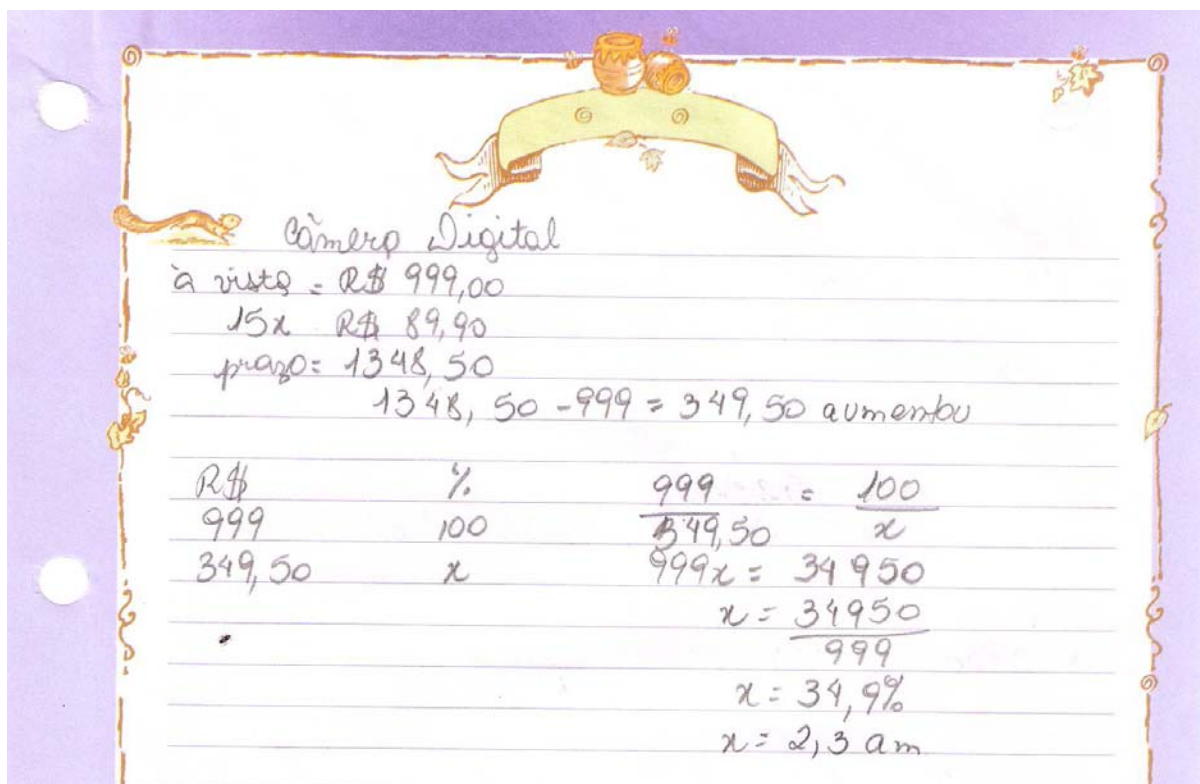 Câmera Digital
à vista = R$ 999,00
15x R$ 89,90
prazo = 1348,50
1348,50 - 999 = 349,50 aumentou
R$ % 999 = 100
999 100 349,50 x
349,50 x 999x = 34950
x = 34950
999
x = 34,9%
x = 2,3 am